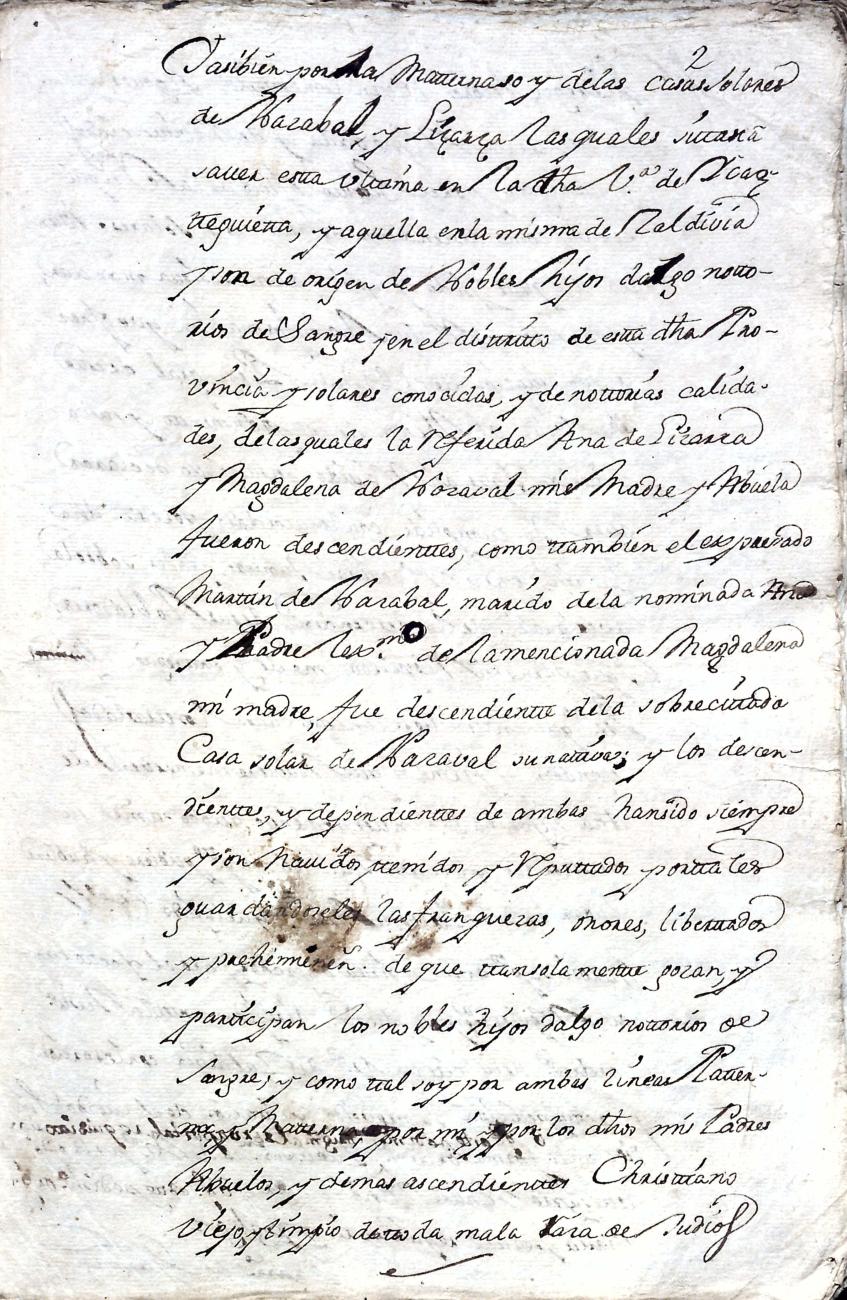 2
Y asibien por la Matterna so y de las casas solares
de Narabal, y Liçarça las quales sitas a
saver estta Vlttima en la dha V.ª de Ycaz-
tteguietta, y aquella en la misma de Zaldivia
y son de origen de Nobles hijos dalgo notto-
rios de Sangre, en el disttritto de estta dha Pro-
vincia y solares conocidas, y de nottorias calida-
des, de las quales la referida Ana de Lizarza
y Magdalena de Naraval mis Madre y Abuela
fueron descendienttes, como ttambien el expresado
Martin de Narabal, marido de la nominada Ana
y Padre lex.mo de la mencionada Magdalena
mi madre, fue descendientte de la sobrecitada
Casa solar de Naraval su nativa; y los descen-
dienttes, y dependienttes de ambas han sido siempre
y son havidos ttenidos y reputtados por tales
guardandoseles las franquezas, onores, liberttades
y preheminen.s de que ttan solamentte gozan, y
partticipan los nobles hijos dalgo nottorios de
Sangre, y como ttal soy por ambas lineas Patter-
na y Matterna, por mi, y por los dhos mis Padres
Abuelos, y demas ascendienttes Christtiano
viejo, y limpio de toda mala Raza de Judios